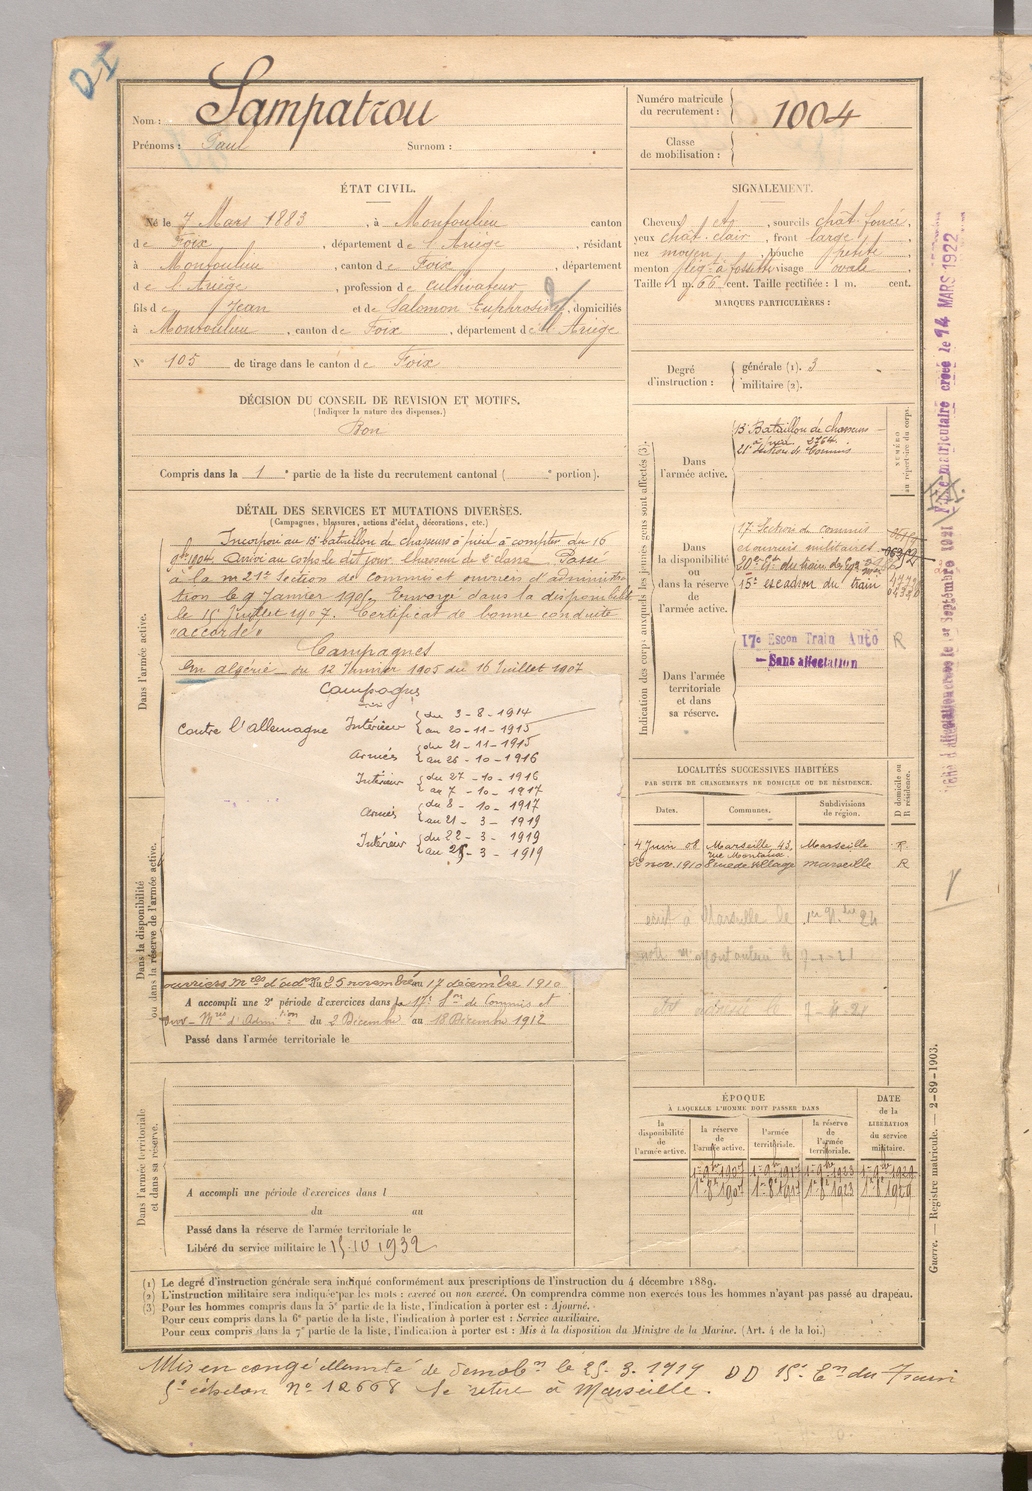 Nom : Sampatrou
Prénoms : Paul Surnom :
Numéro matricule du recrutement : 1004
Classe de mobilisation :
ÉTAT CIVIL.
Né le 7 Mars 1883, à Montoulieu canton
de Foix, département de l'Ariège, résidant
à Montoulieu, canton de Foix, département
de l'Ariège, profession de cultivateur
fils de Jean et de Salomon Euphrosine, domiciliés
à Montoulieu, canton de Foix, département de l'Ariège
N° 105 de tirage dans le canton de Foix
SIGNALEMENT.
Cheveux, sourcils chât. foncé,
yeux chât. clair, front large,
nez moyen, bouche petite,
menton à fossette visage ovale
Taille : 1 m. 66 cent. Taille rectifiée : 1 m. cent.
MARQUES PARTICULIÈRES :
Degré d'instruction : générale (1). 3
militaire (2).
DÉCISION DU CONSEIL DE REVISION ET MOTIFS.
(Indiquer la nature des dispenses.)
Bon
Compris dans la 1e partie de la liste du recrutement cantonal ( e portion).
DÉTAIL DES SERVICES ET MUTATIONS DIVERSES.
(Campagnes, blessures, actions d'éclat, décorations, etc.)
Dans l'armée active.
Incorporé au 15e bataillon de chasseurs à pied à compter du 16
9bre 1904. Arrivé au corps le dit jour. Chasseur de 2e classe. Passé
à la 21e Section de Commis et ouvriers d'administra
tion le 9 Janvier 1905. Envoyé dans la disponibilité
le 15 Juillet 1907. Certificat de bonne conduite
"accordé"
Campagnes
En algérie du 12 Janvier 1905 du 16 Juillet 1907
Campagnes
Contre l'allemagne Intérieur du 3-8-1914
au 20-11-1915
Armées du 21-11-1915
au 26-10-1916
Intérieur du 27-10-1916
au 7-10-1917
Armées du 8-10-1917
au 21-3-1919
Intérieur du 22-3-1919
au 25-3-1919
Dans la disponibilité ou dans la réserve de l'armée active.
ouvriers mres d'adon du 25 novembre au 17 décembre 1910
A accompli une 2e période d'exercices dans la 17e Son de Commis et
ouv- Mres d'Admi tion du 2 Décembre au 18 Décembre 1912
Passé dans l'armée territoriale le
Dans l'armée territoriale et dans sa réserve.
A accompli une période d'exercices dans l
du au
Passé dans la réserve de l'armée territoriale le
Libéré du service militaire le 15-10 1932
Indication des corps auxquels les jeunes gens sont affectés (3).
NUMÉRO au répertoire du corps.
Dans l'armée active.
15e Bataillon de chasseurs
à pied 2764
21e Section de Commis
Dans la disponibilité ou dans la réserve de l'armée active.
17e Section de commis
et ouvriers militaires
15e escadron du train
17e Escon Train Auto R
Sans affectation
Dans l'armée territoriale et dans sa réserve.
LOCALITÉS SUCCESSIVES HABITÉES
PAR SUITE DE CHANGEMENTS DE DOMICILE OU DE RÉSIDENCE.
Dates. Communes. Subdivisions de région. D domicile ou R résidence.
4 Juin 08 Marseille 43, Marseille R
nov. 1910 marseille R
à Marseille le
Montoulieu le 7-1-21
ÉPOQUE
À LAQUELLE L'HOMME DOIT PASSER DANS
la disponibilité de l'armée active.
la réserve de l'armée active.
l'armée territoriale.
la réserve de l'armée territoriale.
DATE de la LIBÉRATION du service militaire.
1er 9bre 1907 1er 9bre 1917 1er 9bre 1923 1er 9bre 1929
1er 8e 1907 1er 8e 1917 1er 8e 1923 1er 8e 1929
(1) Le degré d'instruction générale sera indiqué conformément aux prescriptions de l'instruction du 4 décembre 1889.
(2) L'instruction militaire sera indiquée par les mots : exercé ou non exercé. On comprendra comme non exercés tous les hommes n'ayant pas passé au drapeau.
(3) Pour les hommes compris dans la 5e partie de la liste, l'indication à porter est : Ajourné.
Pour ceux compris dans la 6e partie de la liste, l'indication à porter est : Service auxiliaire.
Pour ceux compris dans la 7e partie de la liste, l'indication à porter est : Mis à la disposition du Ministre de la Marine. (Art. 4 de la loi.)
Mis en congé illimité de démobon le 25-3-1919 DD 15e Eon du Train
5e échelon N° 12668 Se retire à Marseille.
Guerre. — Registre matricule. — 2-89-1903.
matriculaire créée le 14 MARS 1922